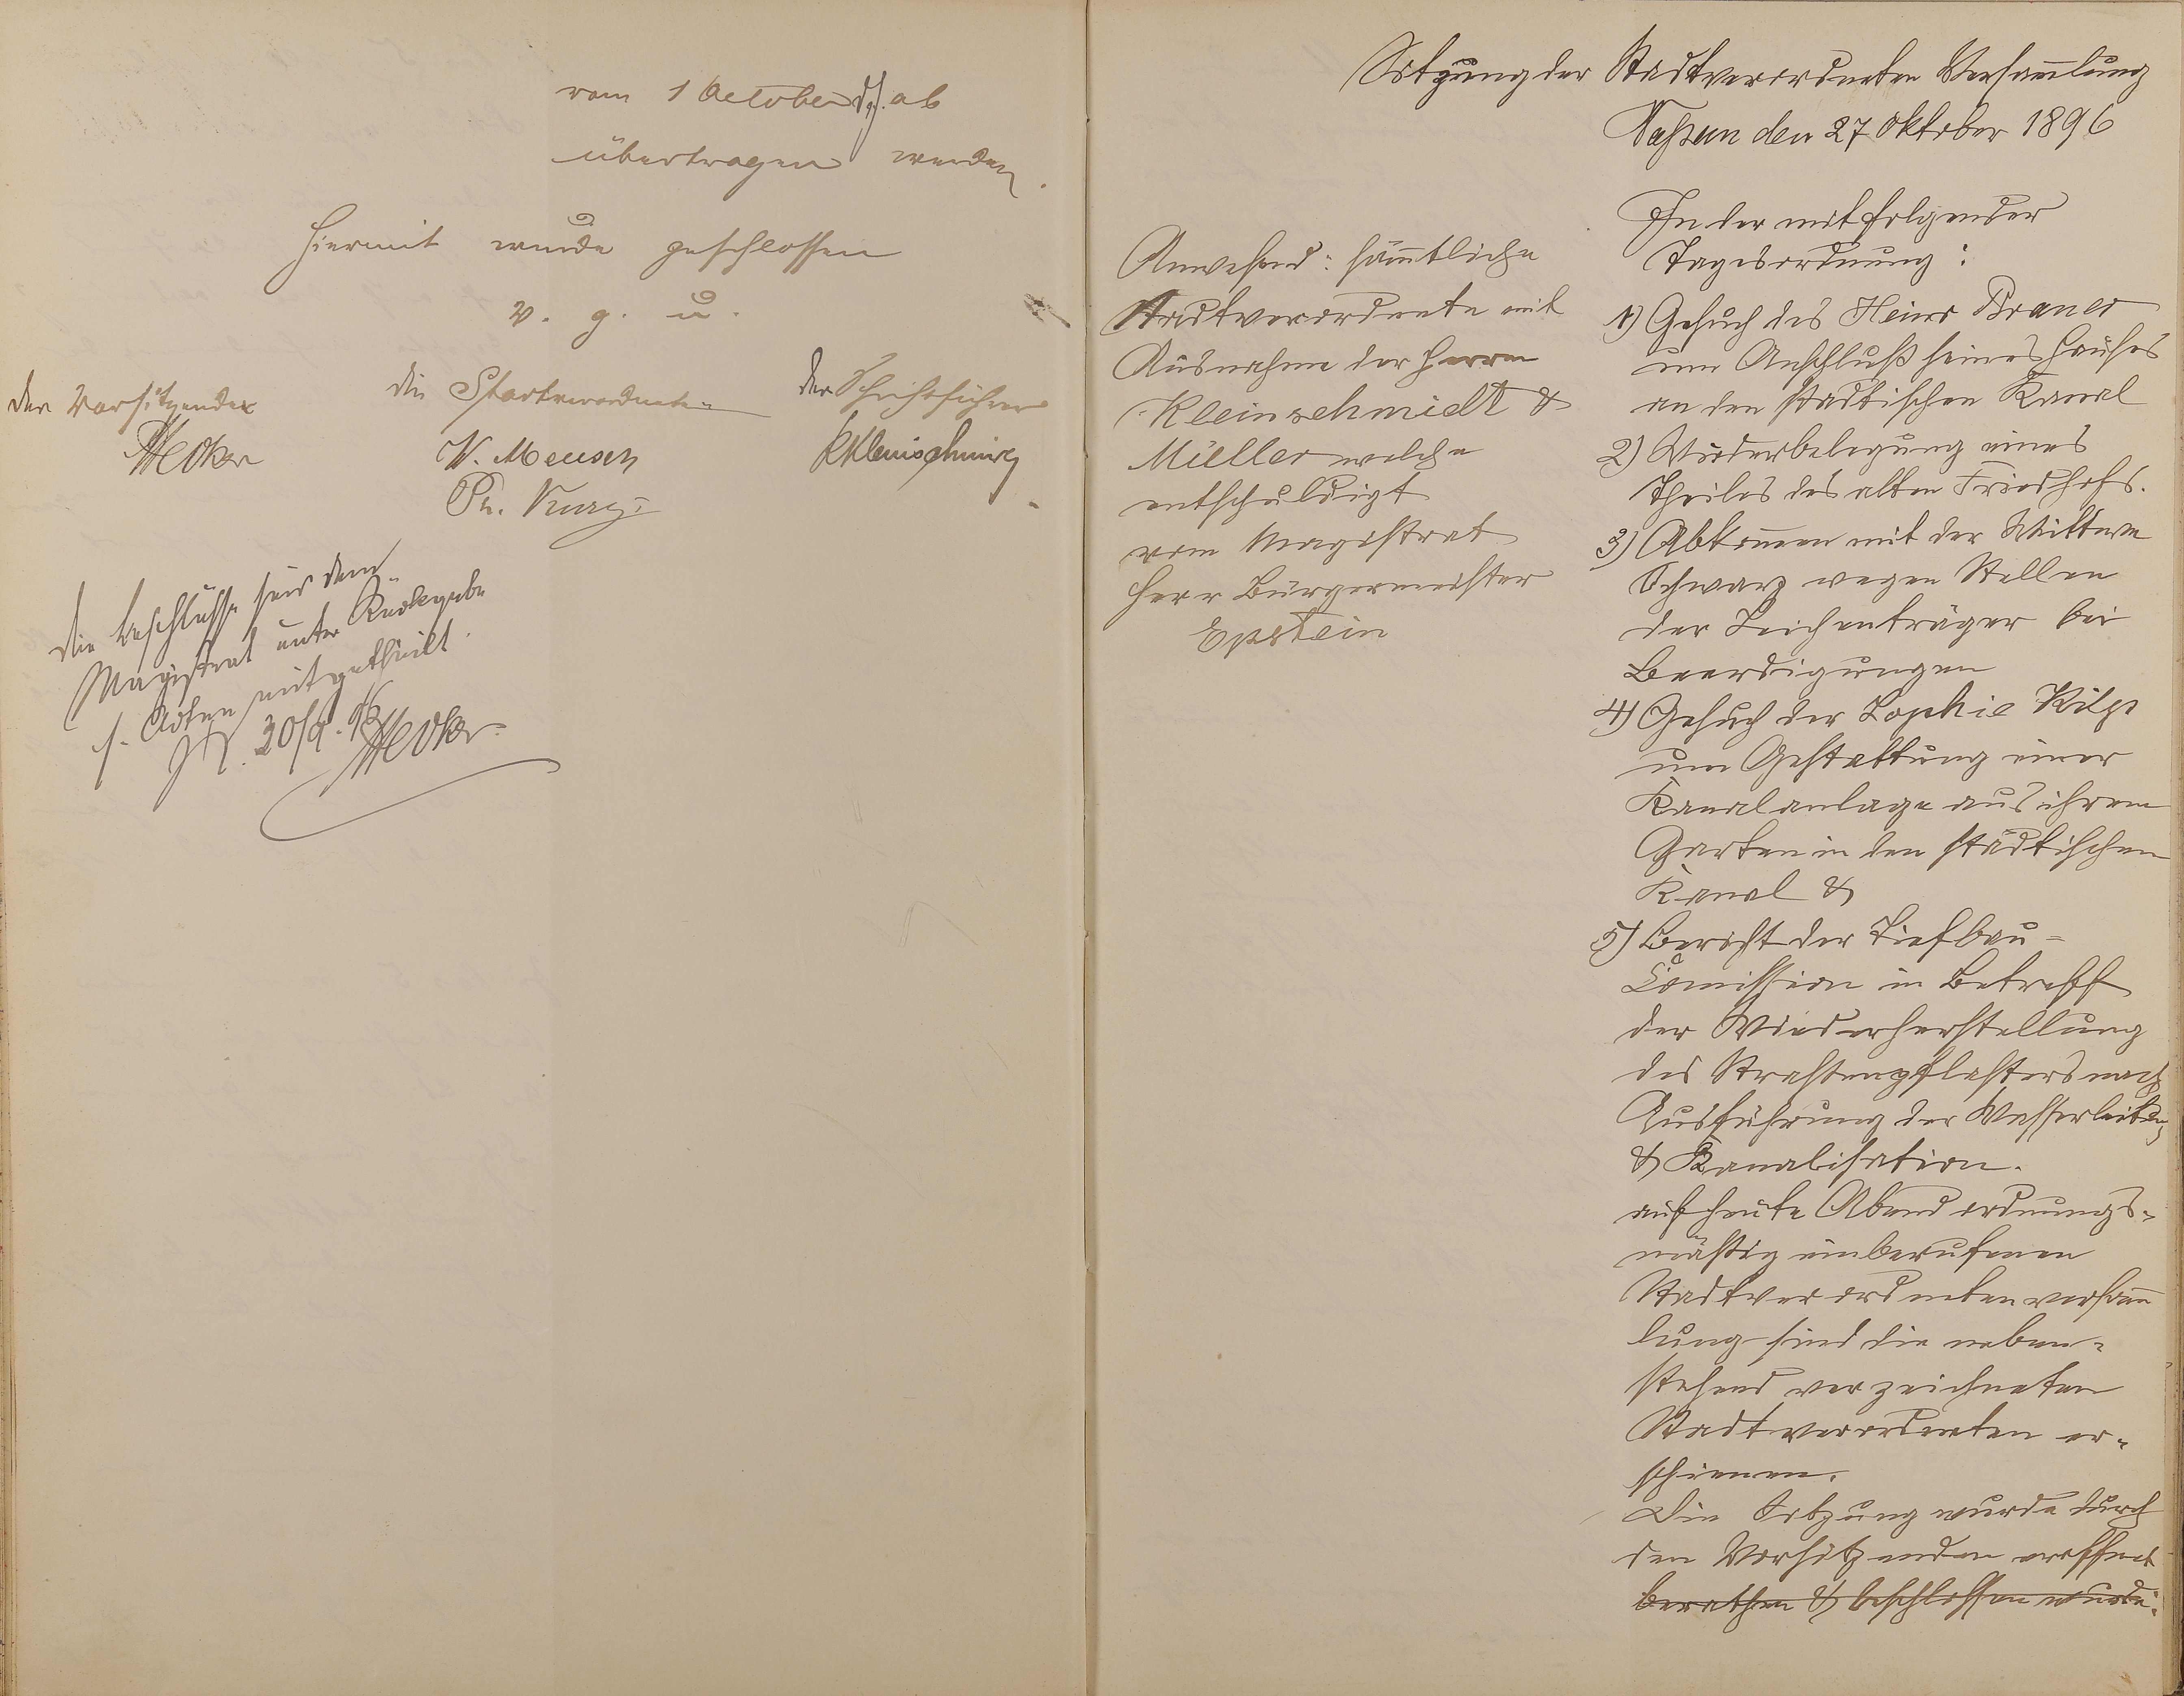 vom 1 October d. J. ab
übertragen werden.
Hiermit wurde geschlossen
v. g. u.
der Vorsitzende
die Stadtverordneten
der Schriftführer
W. Meusch
Ph. Kurz
K Kleinschmidt
die Beschlüsse sind dem
Magistrat unter Rückgabe
s. Akten mitgetheilt.
30/9. 96
Sitzung der Stadtverordneten Versam̄lung
den 27 Oktober 1896
Anwesend: säm̄tliche
Stadtverordnete mit
Ausnahme der Herren
Kleinschmidt &
Müller welche
entschuldigt
vom Magistrat
Herr Bürgermeister
Epstein
In der mit folgender
Tagesordnung:
1) Gesuch des Heinr Braner
um Anschluß seines Hauses
an den städtischen Kanal
2) Wiederbelegung eines
Theiles des alten Friedhofs.
3) Abkom̄en mit der Wittwe
Schwarz wegen Stellen
der Leichenträger bei
Beerdigungen
4) Gesuch der Sophie Kilp
um Gestattung einer
Kanalanlage aus ihrem
Garten in den städtischen
Kanal &
5) Bericht der Tiefbau=
Com̄ission in Betreff
der Wiederherstellung
des Straßenpflasters nach
Ausführung der Wasserleitung
& Kanalisation.
auf heute Abend ordnungs=
mäßig einberufenen
Stadtverordnetenversam̄
lung sind die neben=
stehend verzeichneten
Stadtverordneten er=
schienen.
Die Sitzung wurde durch
den Vorsitzenden eröffnet
berathen & beschlossen wurde: